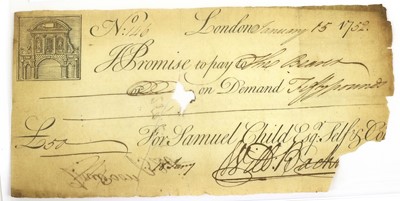 No. 146 London January 15 1752
I Promise to pay to The Bearer
on Demand Fifty pounds
£50 For Samuel Child Esqr. Self & Co